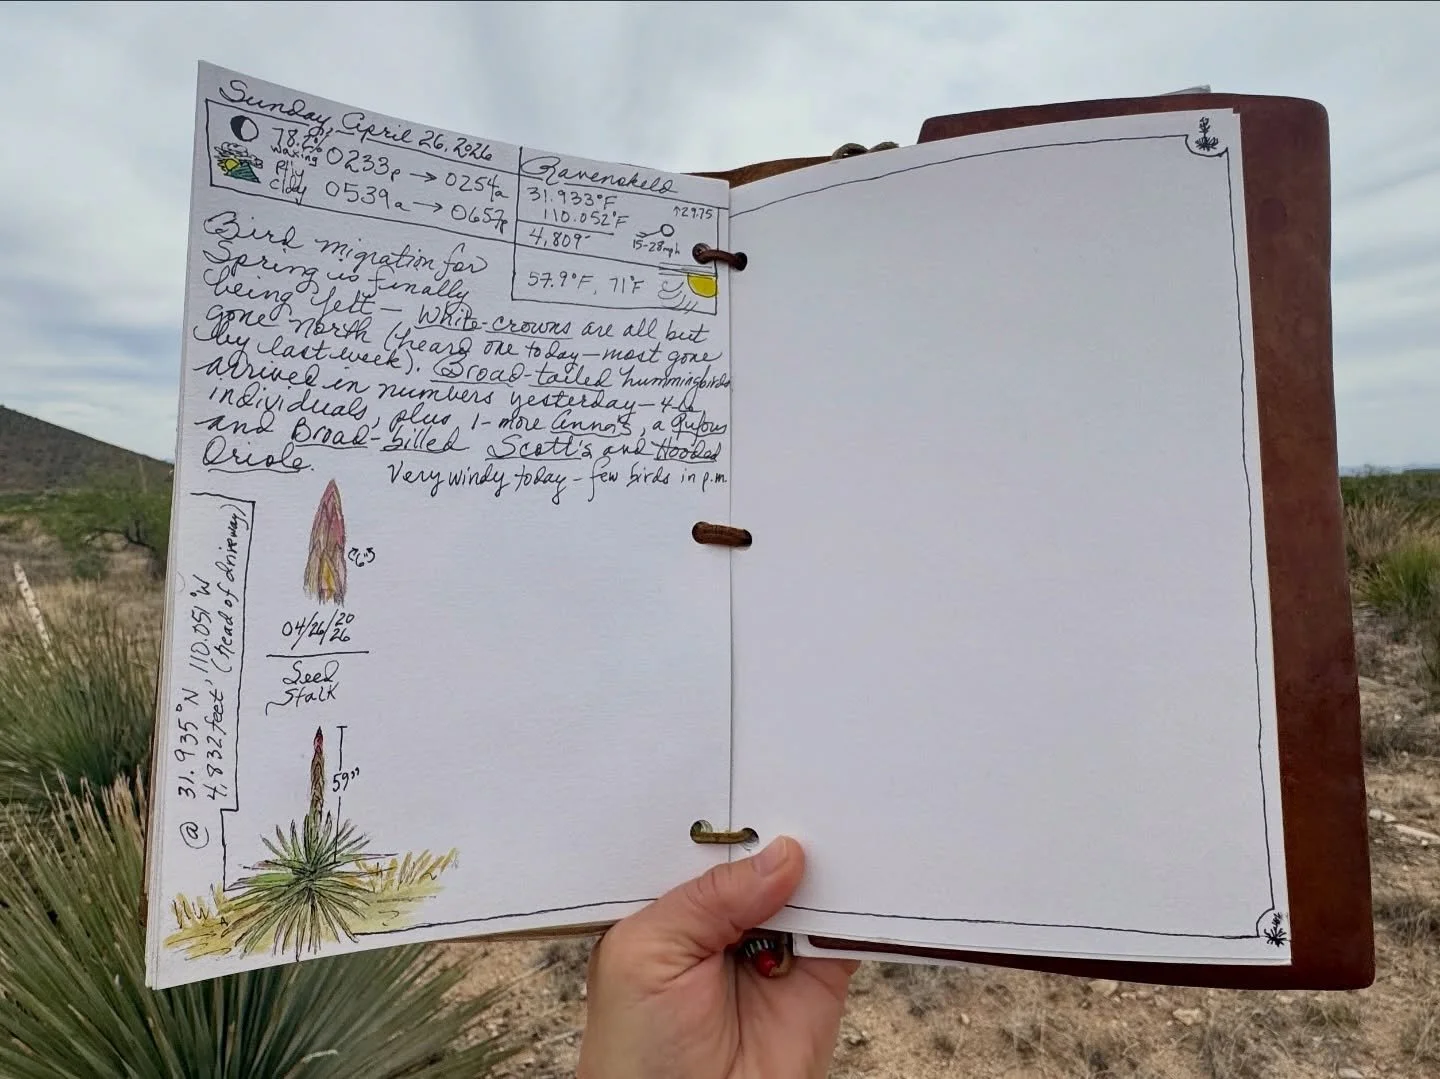 Sunday, April 26, 2026
78.2%
waxing
0233p → 0254a
Ptly
Cldy
0539a → 0657p
Ravenskeld
31.933°F
110.052°F
4,809'
↑29.75
15-28mph
57.9°F, 71°F
Bird migration for
Spring is finally
being felt — White-crowns are all but
gone north (heard one today — most gone
by last week). Broad-tailed hummingbirds
arrived in numbers yesterday — 4-6
individuals, plus 1-more Anna's, a Rufous
and Broad-billed Scott's and Hooded
Oriole.
Very windy today – few birds in p.m.
@ 31.935°N, 110.051°W
4,832 feet, (head of driveway)
6"
04/26/2026
Seed
Stalk
59"